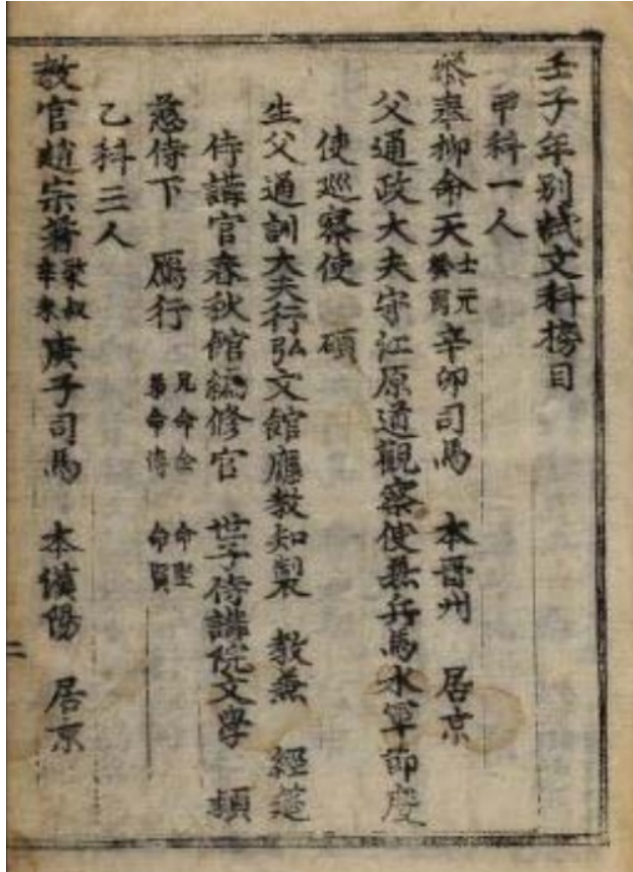 壬子年別試文科榜目
甲科一人
參奉柳命天士元癸酉辛卯司馬 本晋州 居京
父通政大夫守江原道觀察使兼兵馬水軍節度
使巡察使 碩
生父通訓大夫行弘文館應教知製 教兼 經莚
侍講官春秋館編修官 世子侍講院文學 頴
慈侍下 鴈行 兄命全 弟命傳 命堅 命賢
乙科三人
教官趙宗著叔辛未庚子司馬 本漢陽 居京
二